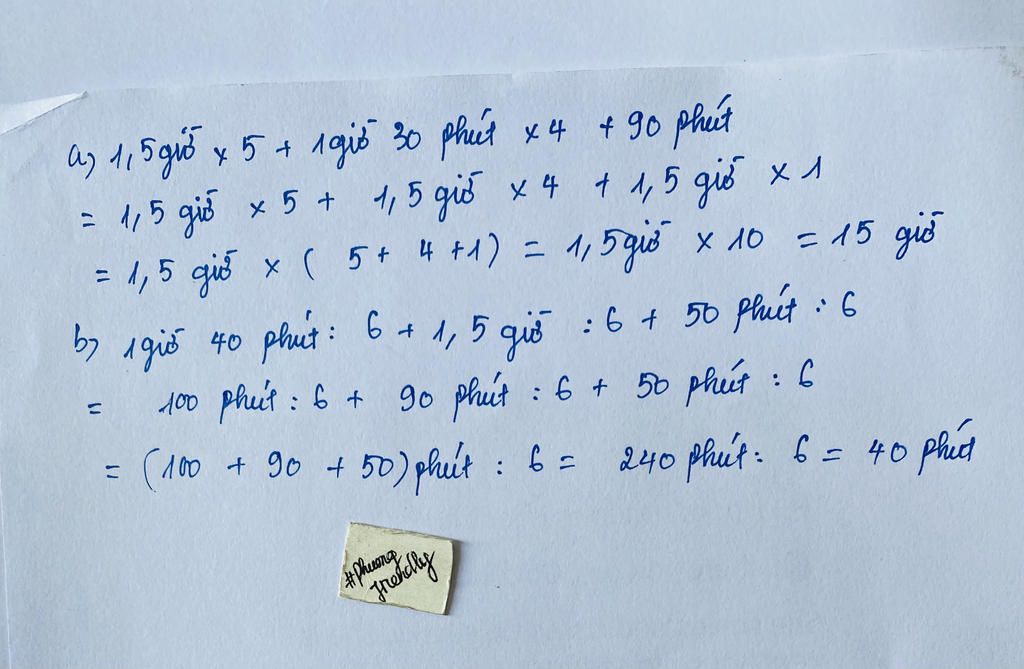 a) 1,5 giờ x 5 + 1 giờ 30 phút x 4 + 90 phút
= 1,5 giờ x 5 + 1,5 giờ x 4 + 1,5 giờ x 1
= 1,5 giờ x ( 5 + 4 + 1) = 1,5 giờ x 10 = 15 giờ
b) 1 giờ 40 phút : 6 + 1,5 giờ : 6 + 50 phút : 6
= 100 phút : 6 + 90 phút : 6 + 50 phút : 6
= (100 + 90 + 50) phút : 6 = 240 phút : 6 = 40 phút
#Phuong
friendly